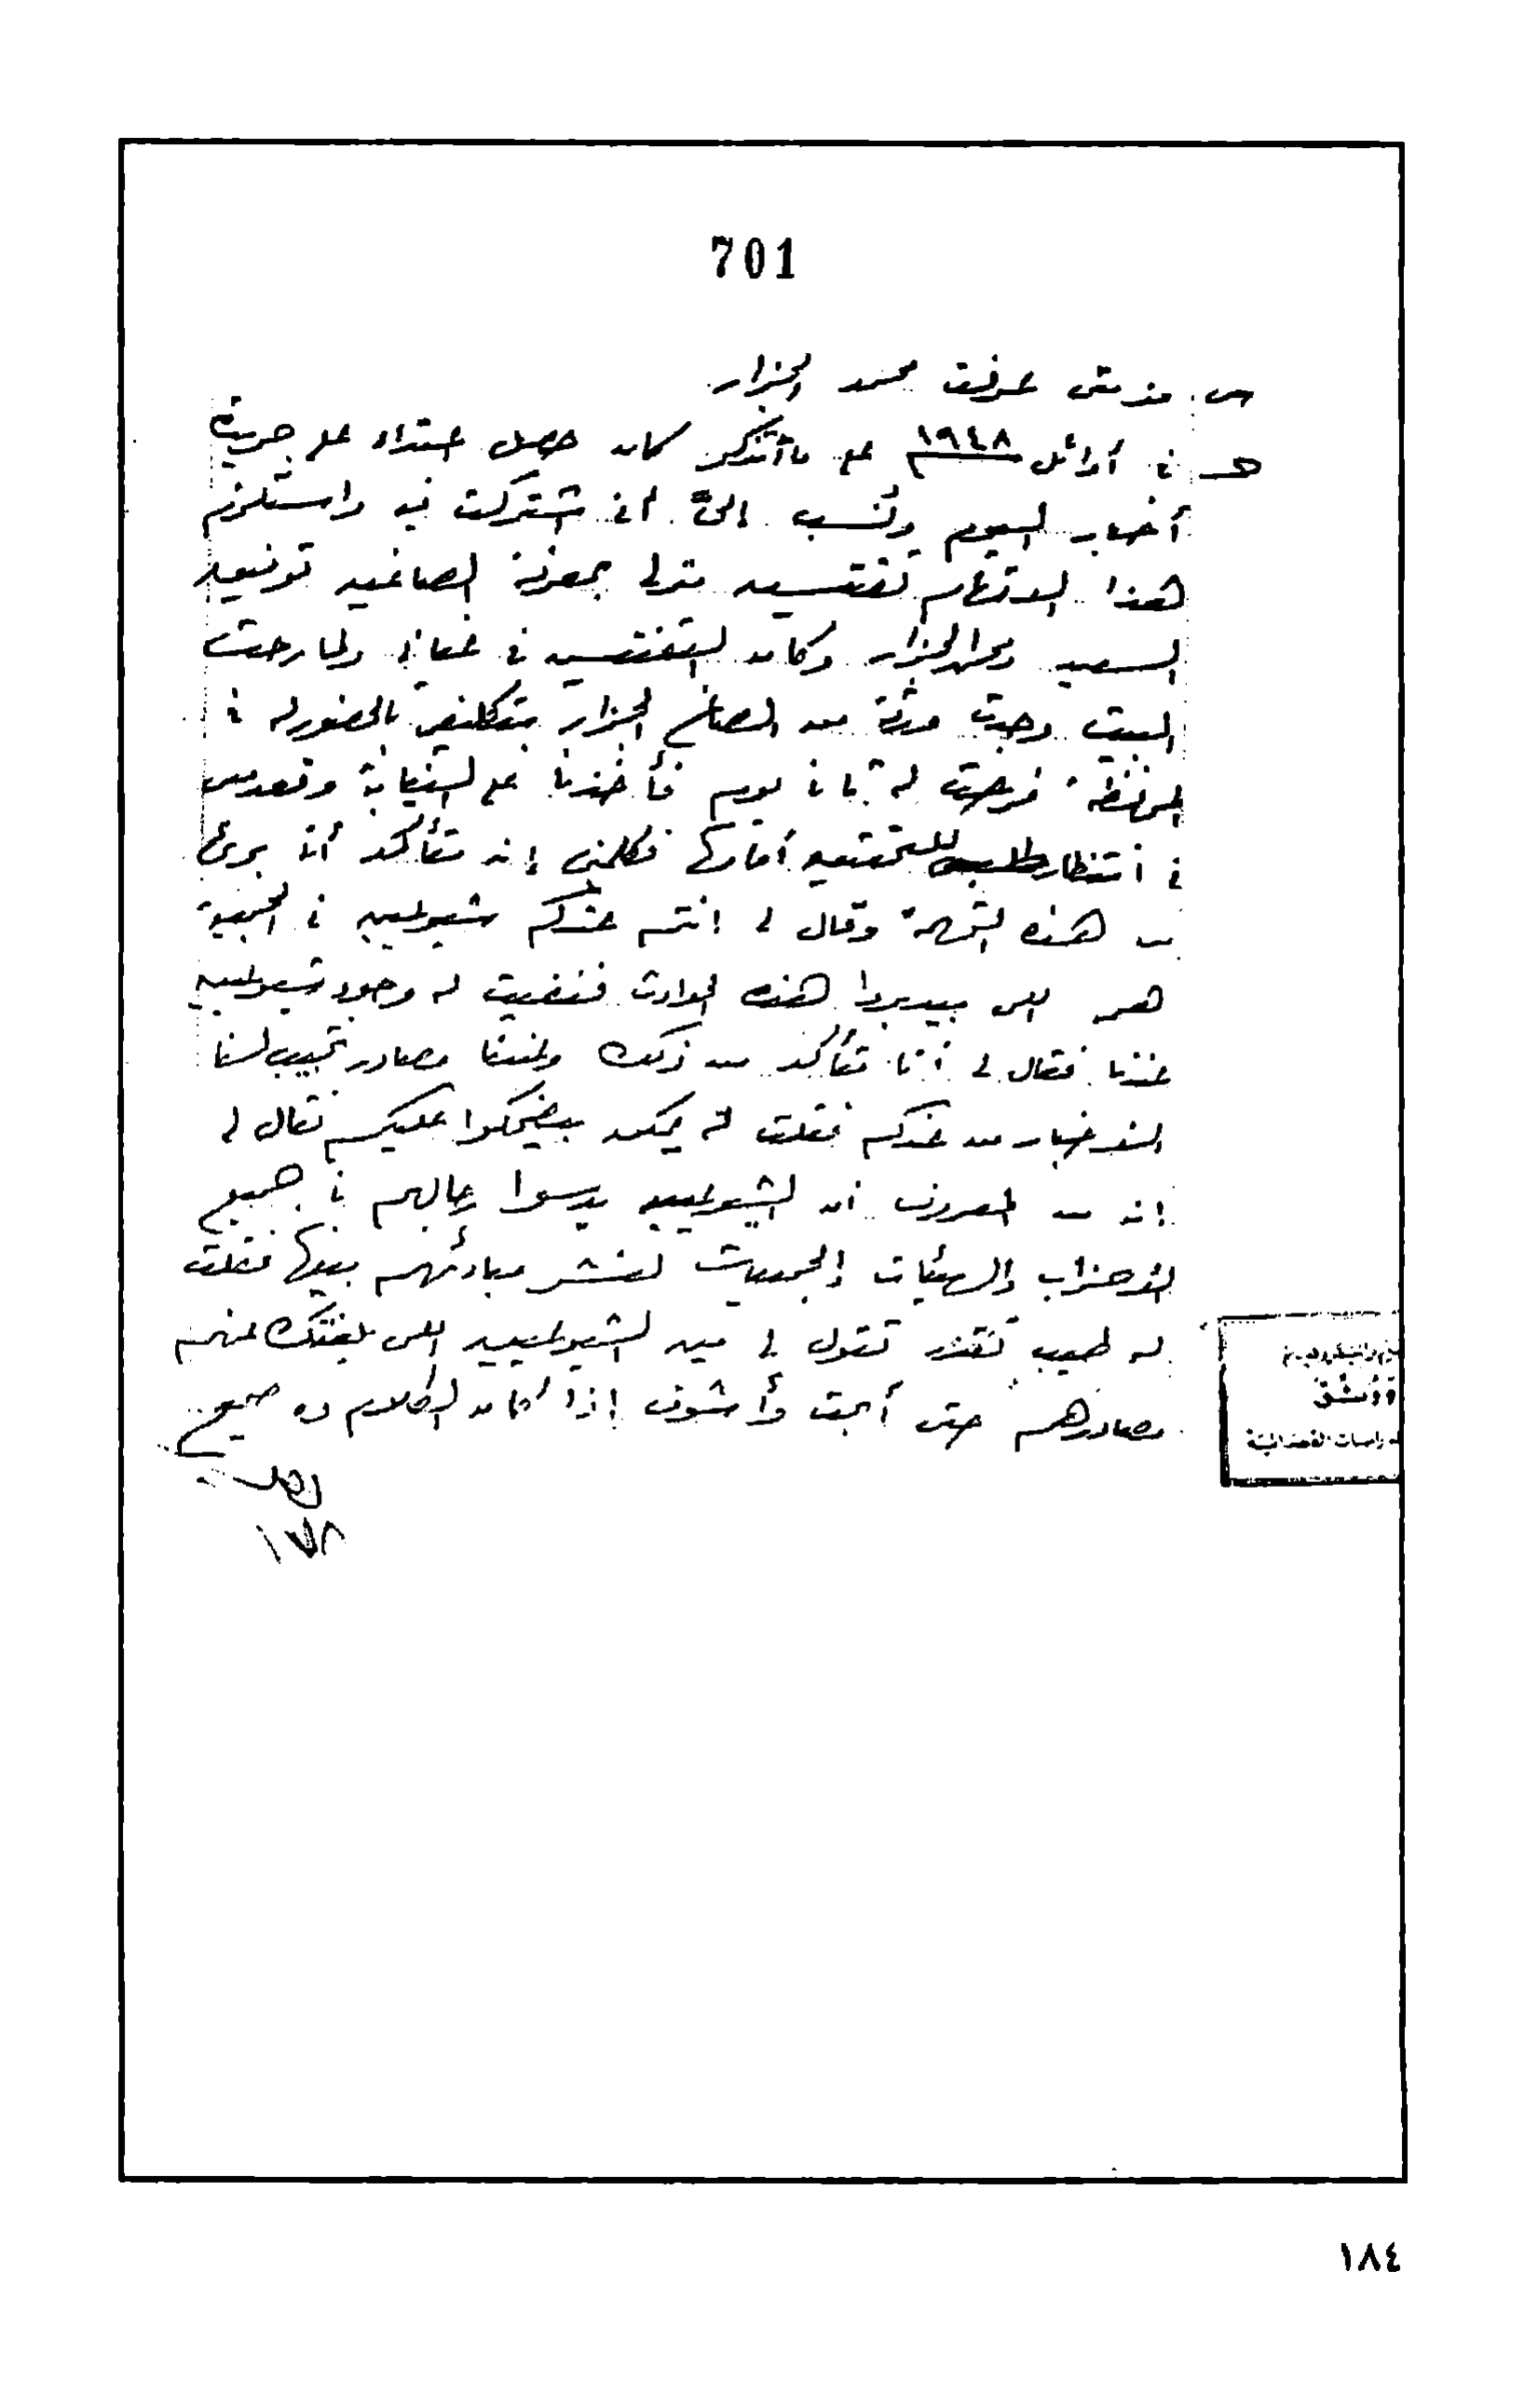 701
س. منذ متى عرفت محمد الجزار
هـ في أوائل ١٩٤٨م على ما أتذكر كان حصل اعتداء على جريدة
أخبار اليوم ونُسب إليَّ أني اشتركت فيه واستلزم
هذا الاتهام تفتيش منزلي بمعرفة الصاغين توفيق
السعيد ومحمد الجزار وكان التفتيش في غيابي ولما رجعت
البيت وجدت ورقة من الصاغ الجزار بتكليفي بالحضور له في
المحافظة فرحت له تاني يوم فأخذنا على النيابة وقعدنا
في انتظار طلب للتحقيق فكلمني إنه متأكد أنا بريء
من هذه التهمة وقال لي انتم عندكم شيوعيين في الجمعية
هم اللي بيدبروا هذه الحوادث فنفيت له وجود شيوعيين
عندنا فقال لي أنا متأكد من ذلك وعندنا مصادر تجيب لنا
الأخبار من عندكم فقلت له يمكن بيضحكوا عليكم فقال لي
إنه من المعروف أن الشيوعيين يدسوا رجالهم في جميع
الأحزاب والهيئات والجمعيات لنشر مبادئهم بينها فقلت
له طيب تقدر تقول لي مين الشيوعيين اللي بلغتك عنهم
مصادرهم حتى أبحث وأشوف إذا كان الكلام ده صحيح
١٧٨
دمشق
١٨٤